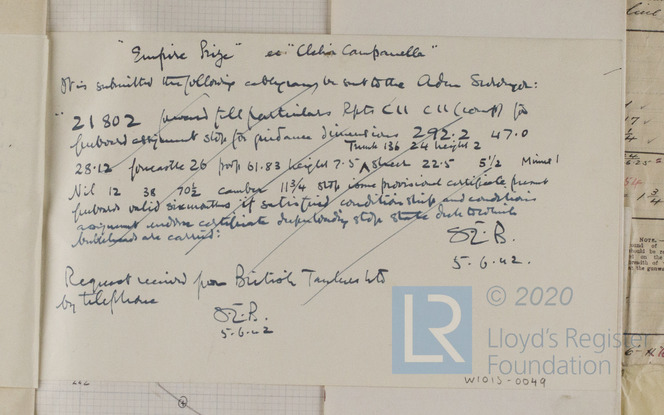 "Empire Prize" ex "Clelia Campanella"
It is submitted the following cablegram be sent to the Aden Surveyor:
"21802 forward full particulars Rpts C11 C11 (comp) for
freeboard assignment stop for guidance dimensions 292.2 47.0
Trunk 136 24 height 2
28.12 forecastle 26 poop 61.83 height 7.5 sheer 22.5 5½ Minus 1
Nil 12 38 70½ camber 11¾ stop issue provisional certificate present
freeboard valid six months if satisfied condition ship and conditions
assignment endorse certificate stop state deck to which
bulkheads are carried:
5.6.42.
Request received from British Tankers Ltd
by telephone
5.6.42
LR
© 2020
Lloyd's Register
Foundation
W1015-0049
NOTE.